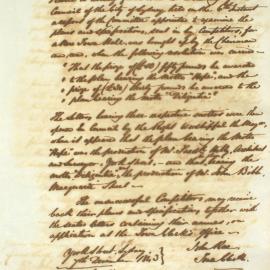 Council of the City of Sydney held on the 6th Instant
a report of the Committee appointed to examine the
plans and specifications, sent in by Competitors, for
a New Town Hall, was brought up by the Chairman
and, when the following resolution was carried
That the prize of (£50) fifty pounds be awarded
to the plan bearing the motto "Hope", and the
prize of (£30) thirty pounds be awarded to the
plan bearing the motto
The letters bearing these respective mottos were then
opened in Council by the Right Worshipful the Mayor
when it appeared that the plan bearing the motto
"Hope" was the production of Mr Architect
and Surveyor, York Street, and that, bearing the
motto the production of Mr John Bibb
Macquarie Street.
The unsuccessful Competitors may receive
back their plans and specifications, together with
the sealed letters containing their names, on
application at the Town Clerk's Office
York Street, Sydney, John Rae
7th December 1843 Town Clerk.